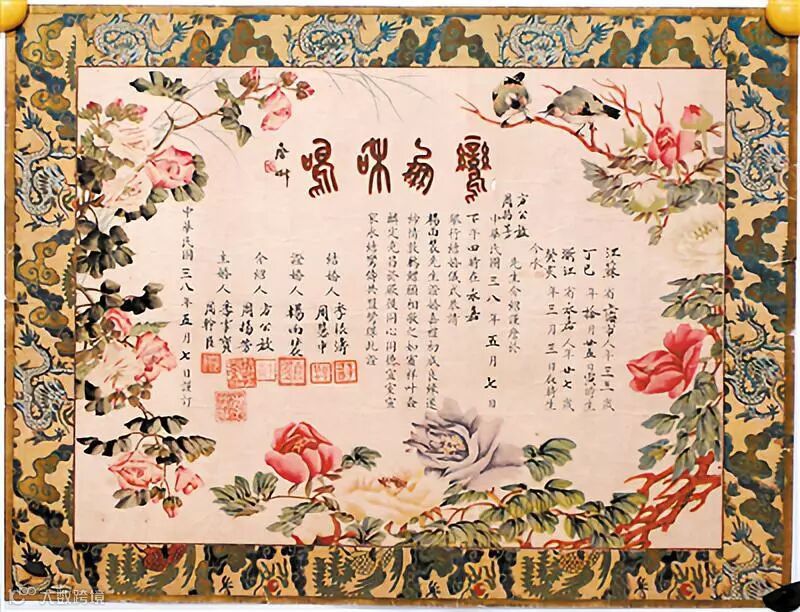 鸞鳳和鳴
江蘇省上海市人年三三歲
丁巳年拾月廿五日寅時生
浙江省永嘉人年廿七歲
癸亥年三月三日 時生
今承
方公放
周楊芳
先生介紹謹詹於
中華民國三八年五月七日
下午四時在永嘉
舉行結婚儀式恭請
楊雨農先生證婚嘉禮初成良緣遂締
情敦鶼鰈相敬之如賓祥叶螽
麟定克昌於厥後同心同德宜室宜
家永結鸞儔共盟鴛牒此證
結婚人
周慧中
證婚人 楊雨農
介紹人
方公放
周楊芳
主婚人
中華民國三八年五月七日謹訂
大数跨境